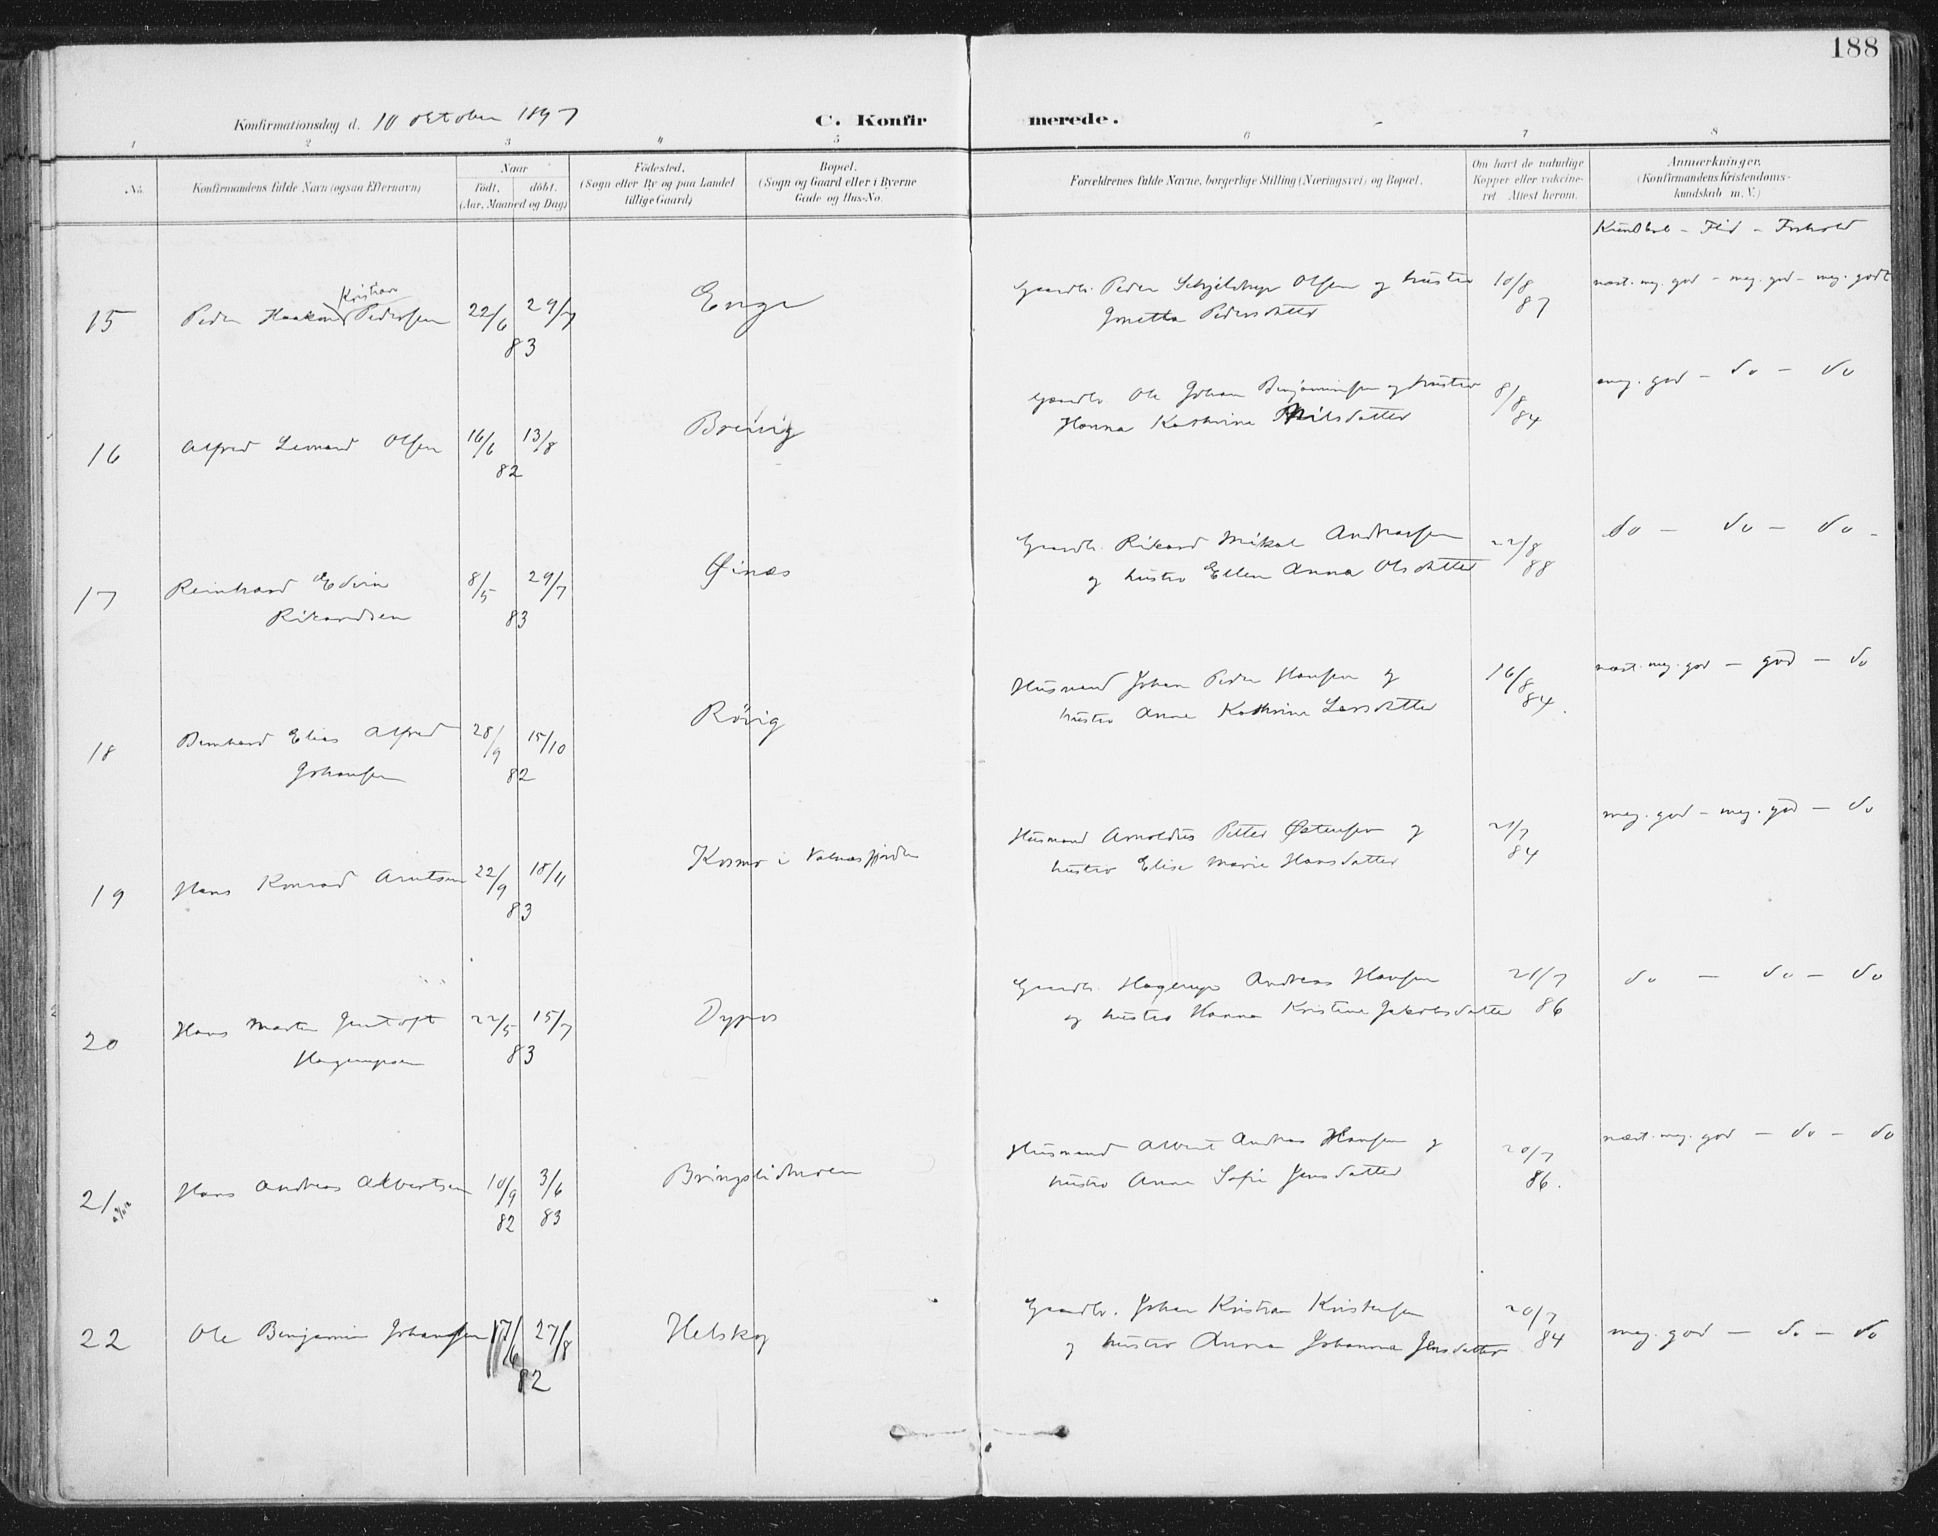 188
Konfirmationsdag d. 10 oktober 1897 C. Konfir merede.
1 2 3 4 5 6 7 8
No.
Konfirmandens fulde Navn (ogsaa Efternavn)
Naar
födt. döbt.
(Aar, Maaned og Dag)
Födested.
(Sogn eller By og paa Landet
tillige Gaard)
Bopæl.
(Sogn og Gaard eller i Byerne
Gade og Hus-No.
Forældrenes fulde Navne, borgerlige Stilling (Næringsvei) og Bopæl.
Om havt de naturlige
Kopper eller vakcine-
ret. Attest herom.
Anmærkninger.
(Konfirmandens Kristendoms-
kundskab m. V.)
Kundskab - Flid - Forhold
15 Peder Haakon Kristian Pedersen 22/6 29/7 83 Enge
Gaardbr. Peder Schjelderup Olsen og hustru
Jonetta Pedersdatter
10/8 87
næst. mg. god - meg. god - meg. godt
16 Alfred Leonard Olsen 16/6 13/8 82 Breivig
Gaardbr. Ole Johan Benjaminsen og hustru
Hanna Kathrine Nilsdatter
8/8 84
meg. god - do - do
17 Reinhard Edvin
Rikardsen
8/5 29/7 83 Øinæs
Gaardbr. Rikard Mikal Andreassen
og hustru Ellen Anna Olsdatter
22/8 88
do - do - do -
18 Bernhard Elias Alfred
Johansen
28/9 15/10 82 Rövig
Husmand Johan Peder Hansen og
hustru Anne Kathrine Larsdatter
16/8 84.
næst. meg. god - god - do
19 Hans Konrad Arntsen 22/9 18/11 83 Kosmo i Valnæsfjorden
Husmand Arnoldus Petter Østensen og
hustru Elise Marie Hansdatter
21/7 84
meg. god - meg. god - do
20 Hans Martin Gentoft
Hagerupsen
22/5 15/7 83 Dypos
Gaardbr. Hagerup Andreas Hansen
og hustru Hanna Kristine Jakobsdatter
21/7 86
do - do - do
21 Hans Andreas Albertsen 10/9 82 3/6 83 Bringslidmoen
Husmand Albert Andreas Hansen og
hustru Anne Sofie Jensdatter
20/7 86.
næst. meg. god - do - do
22 Ole Benjamin Johansen 17/6 27/8 82 Helskog
Gaardbr. Johan Kristian Kristensen
og hustru Anna Johanna Jensdatter
20/7 84
meg. god - do - do